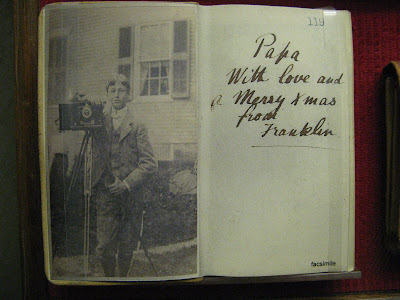 119
Papa
With love and
a Merry Xmas
from
Franklin
facsimile